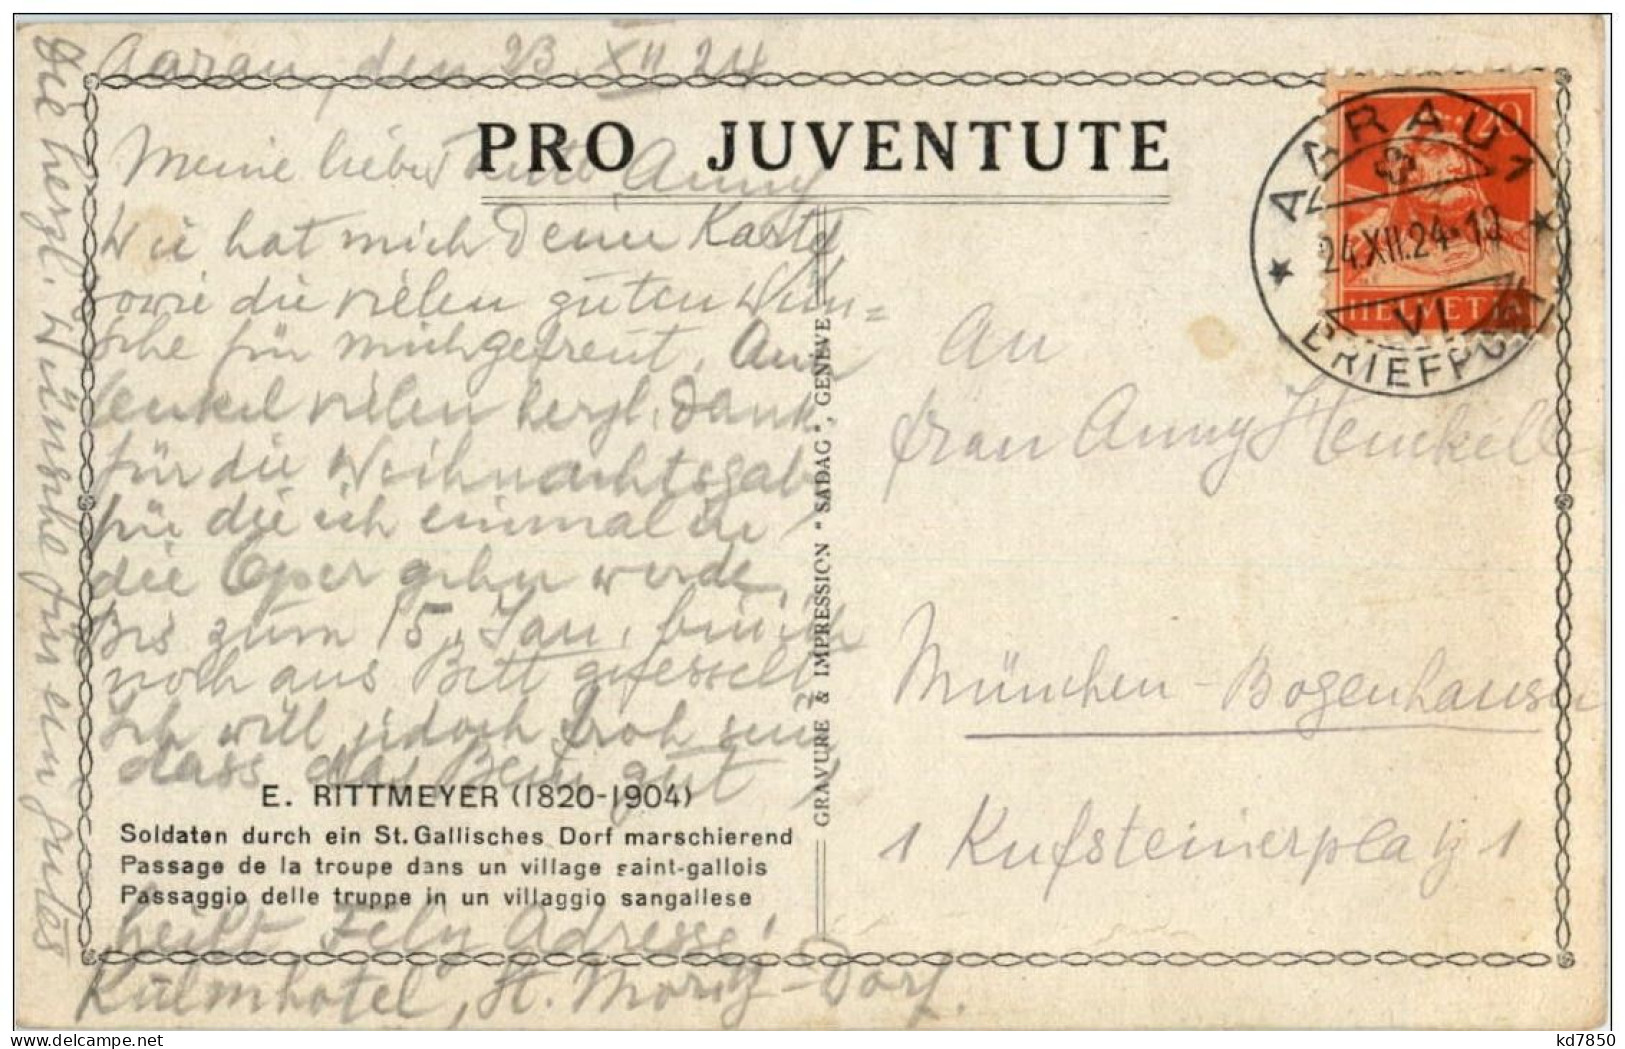 Aarau, den 23. XII 24
PRO JUVENTUTE
Meine liebe Tante Anny
Wie hat mich Deine Karte,
sowie die vielen guten Wün=
sche für mich gefreut. Auch
Onkel vielen herzl. Dank
für die Weihnachtsgabe
für die ich einmal in
die Oper gehen werde.
Bis zum 15. Jan. bin ich
noch ans Bett gefesselt
Ich will jedoch froh sein
dass das Bein gut
E. RITTMEYER (1820-1904)
Soldaten durch ein St. Gallisches Dorf marschierend
Passage de la troupe dans un village saint-gallois
Passaggio delle truppe in un villaggio sangallese
heilt. Adresse:
Kulmhotel, St. Moritz-Dorf.
herzl. Wünsche für ein gutes
GRAVURE & IMPRESSION "SADAG", GENÈVE
AARAU 1
24.XII.24-10
VI
BRIEFPOST
20
HELVETIA
An
Frau Anny Henckell
München-Bogenhausen
1 Kufsteinerplatz 1
kd7850